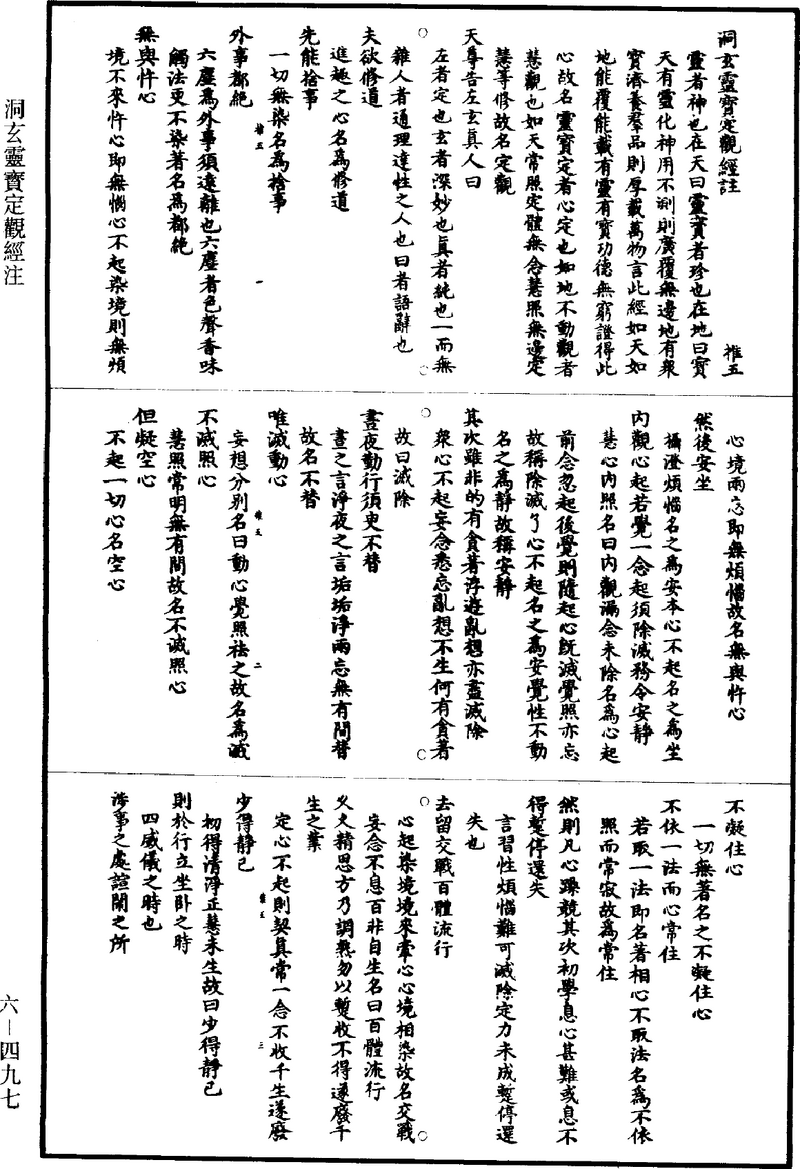 洞玄靈寶定觀經註 推五
靈者神也在天曰靈寶者珍也在地曰寶
天有靈化神用不測則廣覆無邊地有衆
寶濟養羣品則厚載萬物言此經如天如
地能覆能載有靈有寶功德無窮證得此
心故名靈寶定者心定也如地不動觀者
慧觀也如天常照定體無念慧照無邊定
慧等修故名定觀
天尊告左玄真人曰
左者定也玄者深妙也真者純也一而無
雜人者通理達性之人也曰者語辭也
夫欲修道
進趣之心名為修道
先能捨事
一切無染名為捨事
外事都絕
六塵為外事須遠離也六塵者色聲香味
觸法更不染著名為都絕
無與忤心
境不來忤心即無惱心不起染境則無煩
心境兩忘即無煩惱故名無與忤心
然後安坐
攝澄煩惱名之為安本心不起名之為坐
內觀心起若覺一念起須除滅務令安靜
慧心內照名曰內觀漏念未除名為心起
前念忽起後覺則隨起心既滅覺照亦忘
故稱除滅了心不起名之為安覺性不動
名之為靜故稱安靜
其次雖非的有貪著浮遊亂想亦盡滅除
衆心不起妄念悉忘亂想不生何有貪著
故曰滅除
晝夜勤行須臾不替
晝之言淨夜之言垢垢淨兩忘無有間替
故名不替
唯滅動心
妄想分別名曰動心覺照祛之故名為滅
不滅照心
慧照常明無有間故名不滅照心
但凝空心
不起一切心名空心
不凝住心
一切無著名之不凝住心
不依一法而心常住
若取一法即名著相心不取法名為不依
照而常寂故為常住
然則凡心躁競其次初學息心甚難或息不
得暫停還失
言習性煩惱難可滅除定力未成暫停還
失也
去留交戰百體流行
心起染境境來牽心心境相染故名交戰
妄念不息百非自生名曰百體流行
久久精思方乃調熟勿以暫收不得遂廢千
生之業
定心不起則契真常一念不收千生遂廢
少得靜已
初得清淨正慧未生故曰少得靜已
則於行立坐臥之時
四威儀之時也
涉事之處諠鬧之所
推五 一
推五 二
推五 三
洞玄靈寶定觀經注
六—四九七